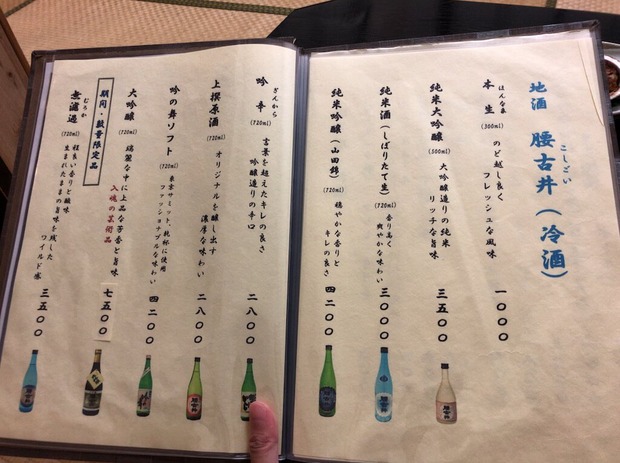 地酒 腰古井(冷酒)
こしごい
本生 (300ml)
ほんなま
のど越し良く
フレッシュな風味
一〇〇〇
純米大吟醸 (300ml)
大吟醸造りの純米
リッチな旨味
三五〇〇
純米酒(しぼりたて生) (720ml)
香り高く
爽やかな味わい
三〇〇〇
純米吟醸(山田錦) (720ml)
穏やかな香りと
キレの良さ
四二〇〇
吟辛 (720ml)
ぎんから
言葉を超えたキレの良さ
吟醸造りの辛口
二八〇〇
上撰原酒 (720ml)
オリジナルを醸し出す
濃厚な味わい
二八〇〇
吟の舞ソフト (720ml)
東京サミット、乾杯に使用
ファッショナブルな味わい
四二〇〇
大吟醸 (720ml)
端麗な中に上品な芳香と旨味
入魂の芸術品
七五〇〇
期間・数量限定品
無濾過 (720ml)
むろか
程良い香りと酸味
生まれたままの旨味を残した
ワイルド感
三五〇〇